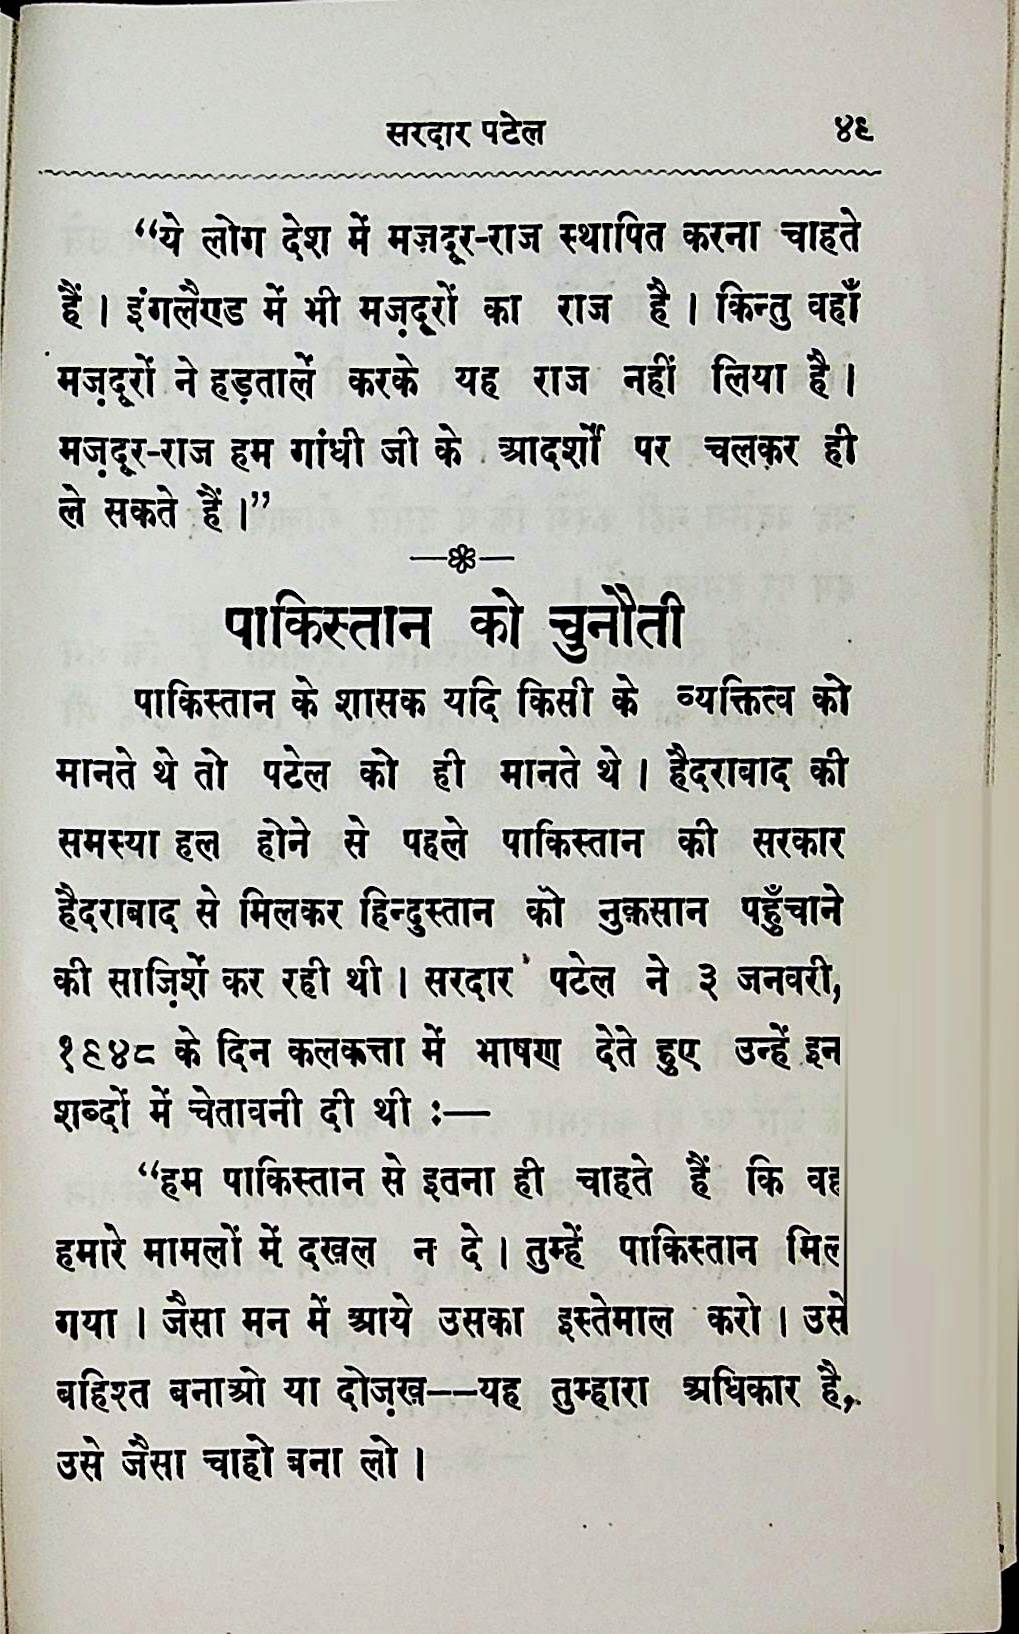 सरदार पटेल ४९
“ये लोग देश में मज़दूर-राज स्थापित करना चाहते
हैं । इंगलैण्ड में भी मज़दूरों का राज है । किन्तु वहाँ
मज़दूरों ने हड़तालें करके यह राज नहीं लिया है ।
मज़दूर-राज हम गांधी जी के आदर्शों पर चलकर ही
ले सकते हैं ।”
पाकिस्तान को चुनौती
पाकिस्तान के शासक यदि किसी के व्यक्तित्व को
मानते थे तो पटेल को ही मानते थे । हैदराबाद की
समस्या हल होने से पहले पाकिस्तान की सरकार
हैदराबाद से मिलकर हिन्दुस्तान को नुक़सान पहुँचाने
की साज़िशें कर रही थी । सरदार पटेल ने ३ जनवरी,
१९४८ के दिन कलकत्ता में भाषण देते हुए उन्हें इन
शब्दों में चेतावनी दी थी :—
“हम पाकिस्तान से इतना ही चाहते हैं कि वह
हमारे मामलों में दखल न दे । तुम्हें पाकिस्तान मिल
गया । जैसा मन में आये उसका इस्तेमाल करो । उसे
बहिश्त बनाओ या दोज़ख——यह तुम्हारा अधिकार है,
उसे जैसा चाहो बना लो ।